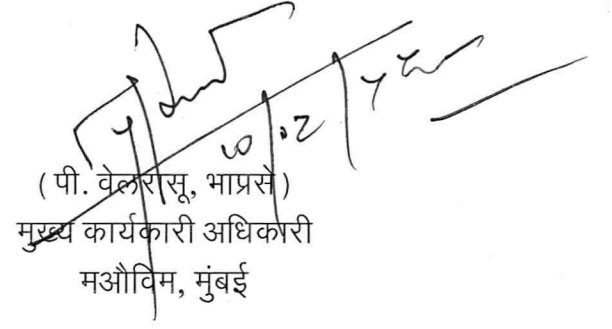 ( पी. वेलरासू, भाप्रसे )
मुख्य कार्यकारी अधिकारी
मऔविम, मुंबई